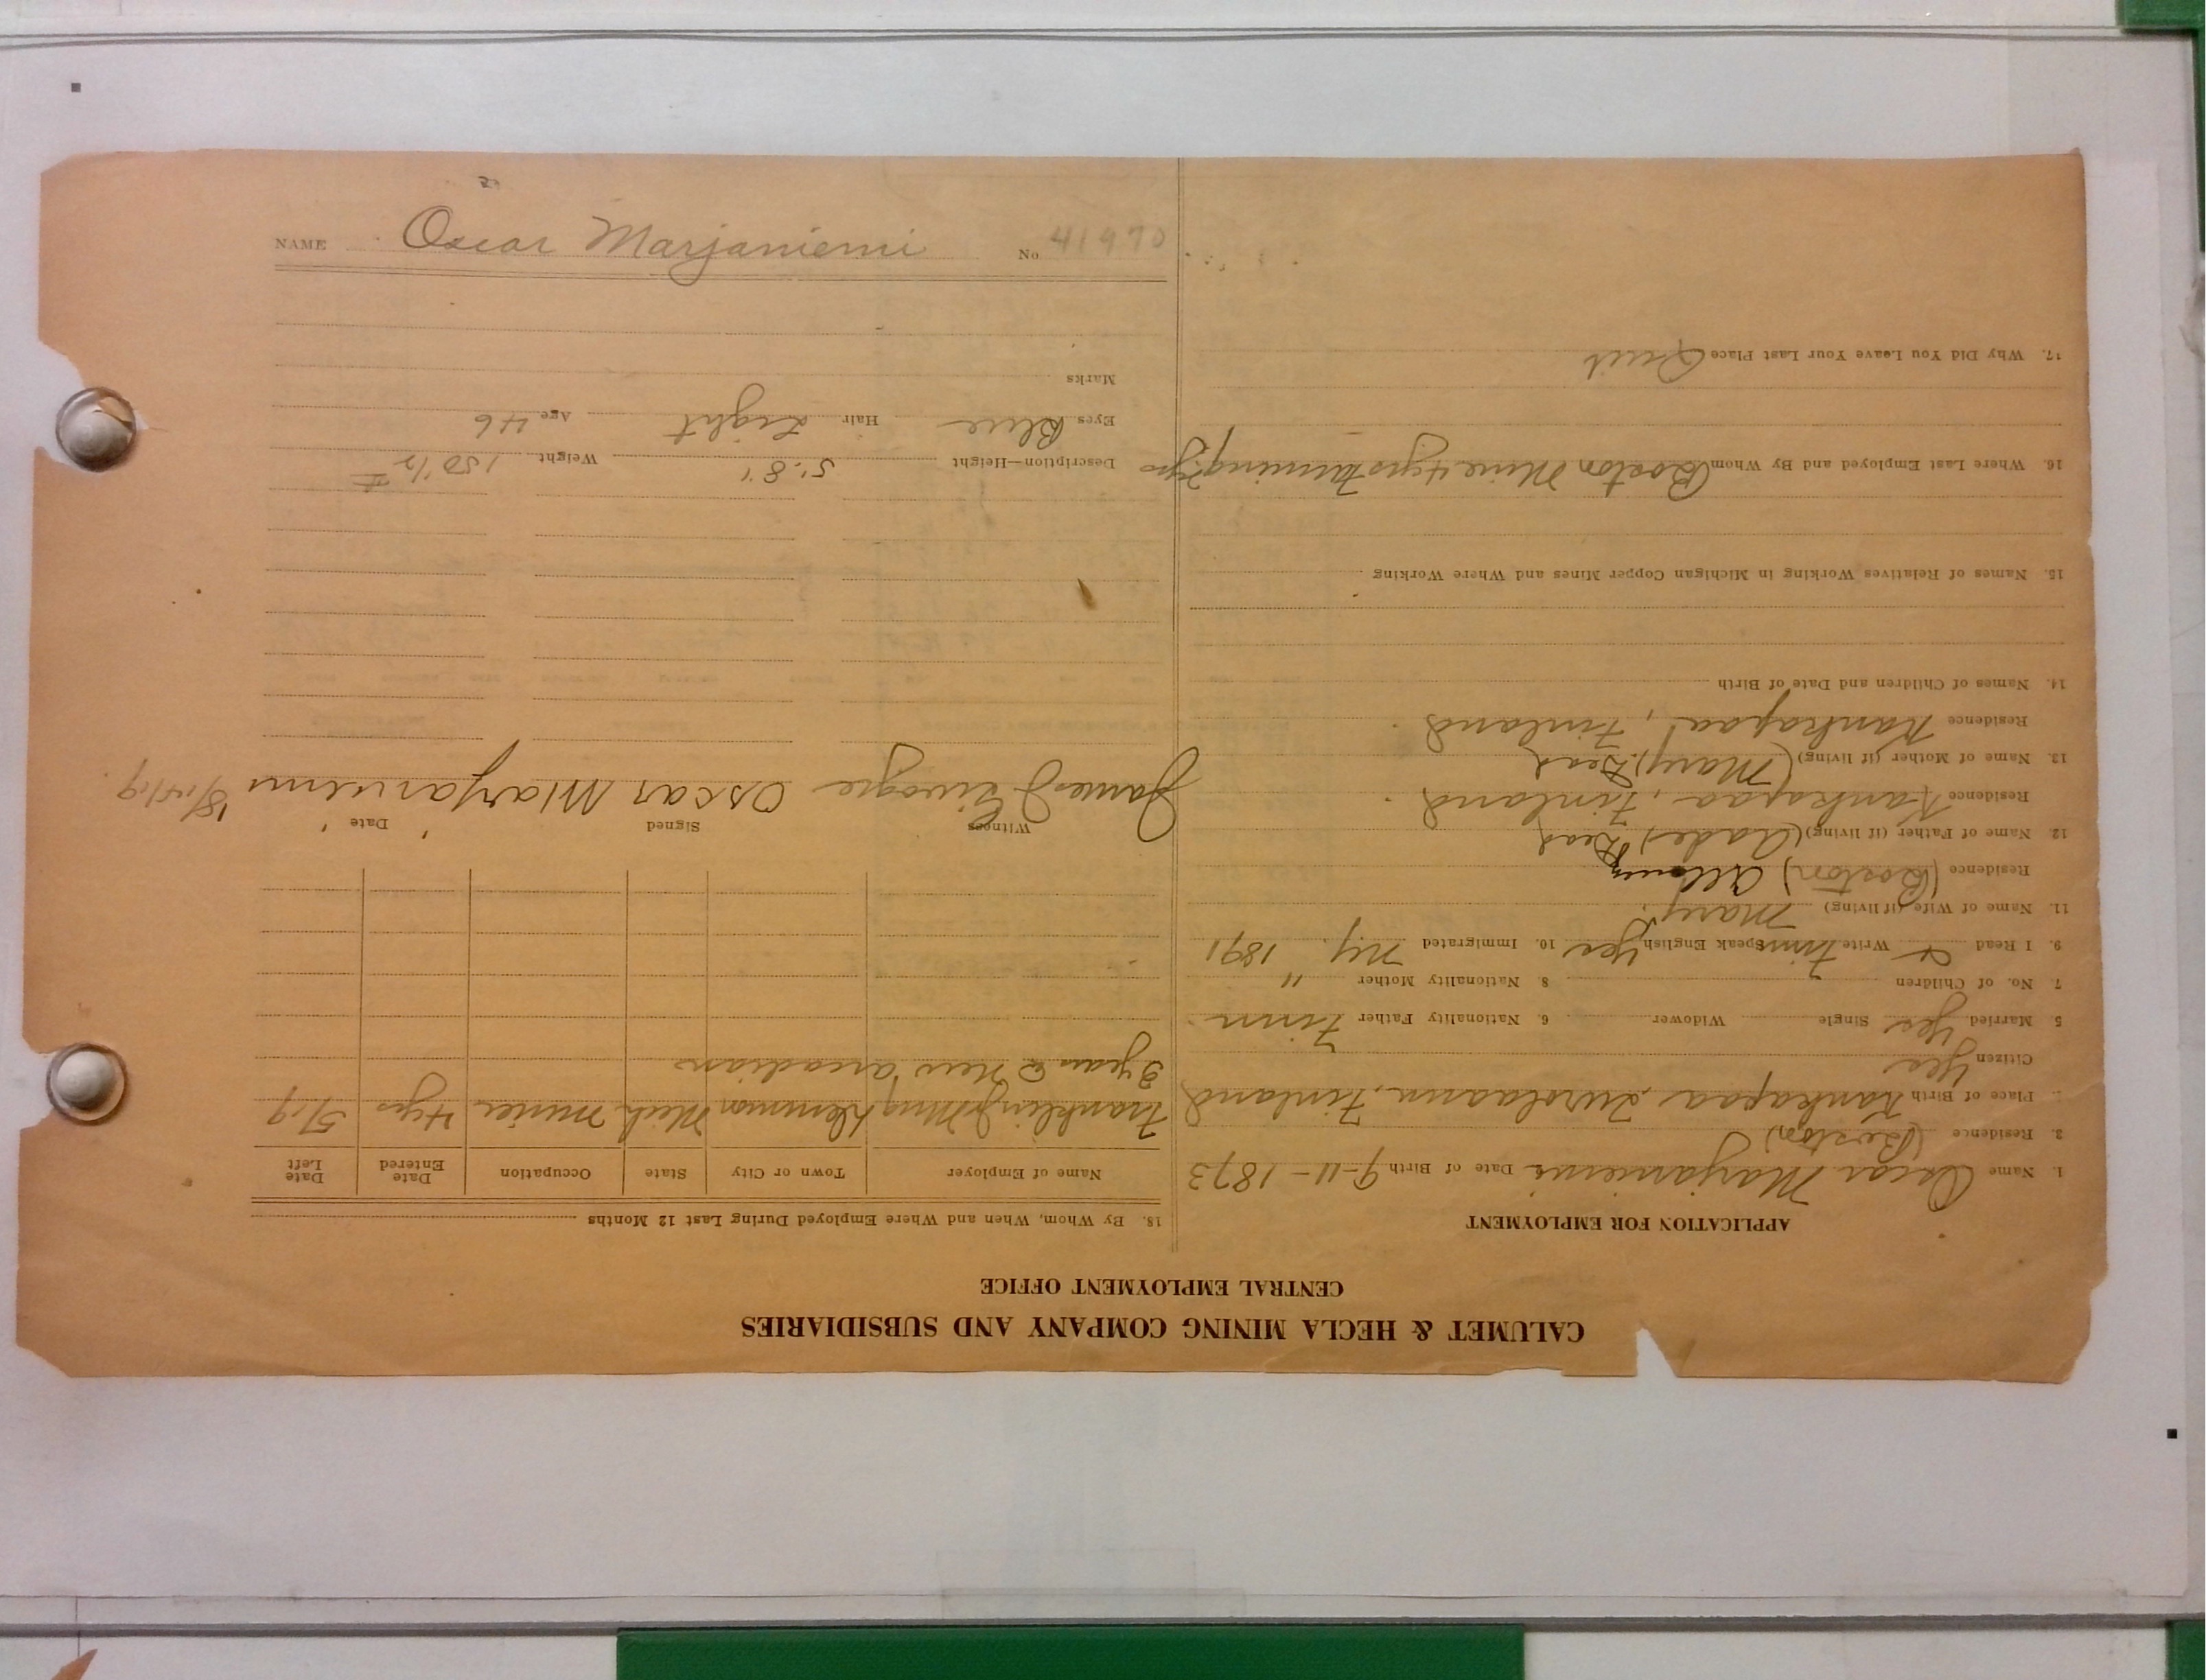 CALUMET & HECLA MINING COMPANY AND SUBSIDIARIES
CENTRAL EMPLOYMENT OFFICE
APPLICATION FOR EMPLOYMENT
1. Name Oscar Marjaniemi Date of Birth 9-11-1873
2. Residence (Boston)
Place of Birth Kankapaa, Finland
Citizen Yes
5 Married Yes Single Widower 6. Nationality Father Finn
7. No. of Children 8 Nationality Mother "
9. I Read & Write Finn Speak English Yes 10. Immigrated NY. 1891
11. Name of Wife (if living) Mary.
Residence (Boston)
12. Name of Father (if living) (Aade) Dead
Residence Kankapaa, Finland
13. Name of Mother (if living) (Mary) Dead
Residence Kankapaa, Finland
14. Names of Children and Date of Birth
15. Names of Relatives Working in Michigan Copper Mines and Where Working
16. Where Last Employed and By Whom Boston Mine 4 yrs Farming
17. Why Did You Leave Your Last Place Quit
18. By Whom, When and Where Employed During Last 12 Months
Name of Employer Town or City State Occupation Date Entered Date Left
Franklin Mng Demmon Mich miner 4 yrs 5/19
3 years @ New Arcadian
Witness Signed Date
James Oscar Marjaniemi
Description—Height 5'-8" Weight 150 1/2
Eyes Blue Hair Light Age 46
Marks
NAME Oscar Marjaniemi No 41970